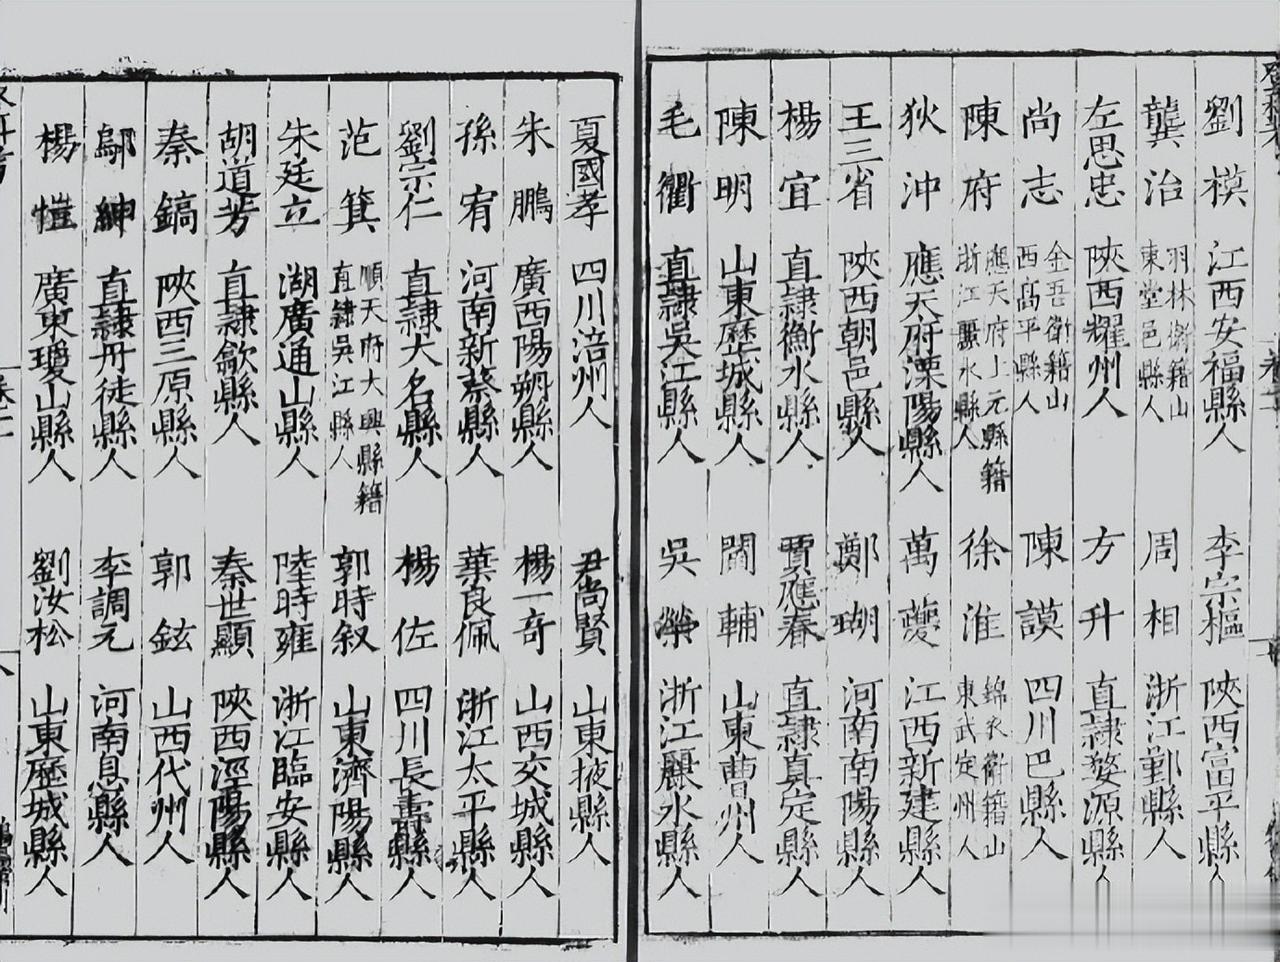 劉模 江西安福縣人 李宗樞 陝西富平縣人
龔治 羽林衛籍山東堂邑縣人 周相 浙江鄞縣人
左思忠 陝西耀州人 方升 直隸婺源縣人
尚志 金吾衛籍山西高平縣人 陳謨 四川巴縣人
陳府 應天府上元縣籍浙江麗水縣人 徐淮 錦衣衛籍山東武定州人
狄沖 應天府溧陽縣人 萬夔 江西新建縣人
王三省 陝西朝邑縣人 鄭瑚 河南南陽縣人
楊宜 直隸衡水縣人 賈應春 直隸真定縣人
陳明 山東歷城縣人 閻輔 山東曹州人
毛衢 直隸吳江縣人 吳 浙江麗水縣人
夏國孝 四川涪州人 尹尚賢 山東掖縣人
朱鵬 廣西陽朔縣人 楊一奇 山西交城縣人
孫宥 河南新蔡縣人 葉良佩 浙江太平縣人
劉宗仁 直隸大名縣人 楊佐 四川長壽縣人
范箕 順天府大興縣籍直隸吳江縣人 郭時叙 山東濟陽縣人
朱廷立 湖廣通山縣人 陸時雍 浙江臨安縣人
胡道芳 直隸歙縣人 秦世顯 陝西涇陽縣人
秦鎬 陝西三原縣人 郭鉉 山西代州人
鄔紳 直隸丹徒縣人 李調元 河南息縣人
楊愷 廣東瓊山縣人 劉汝松 山東歷城縣人